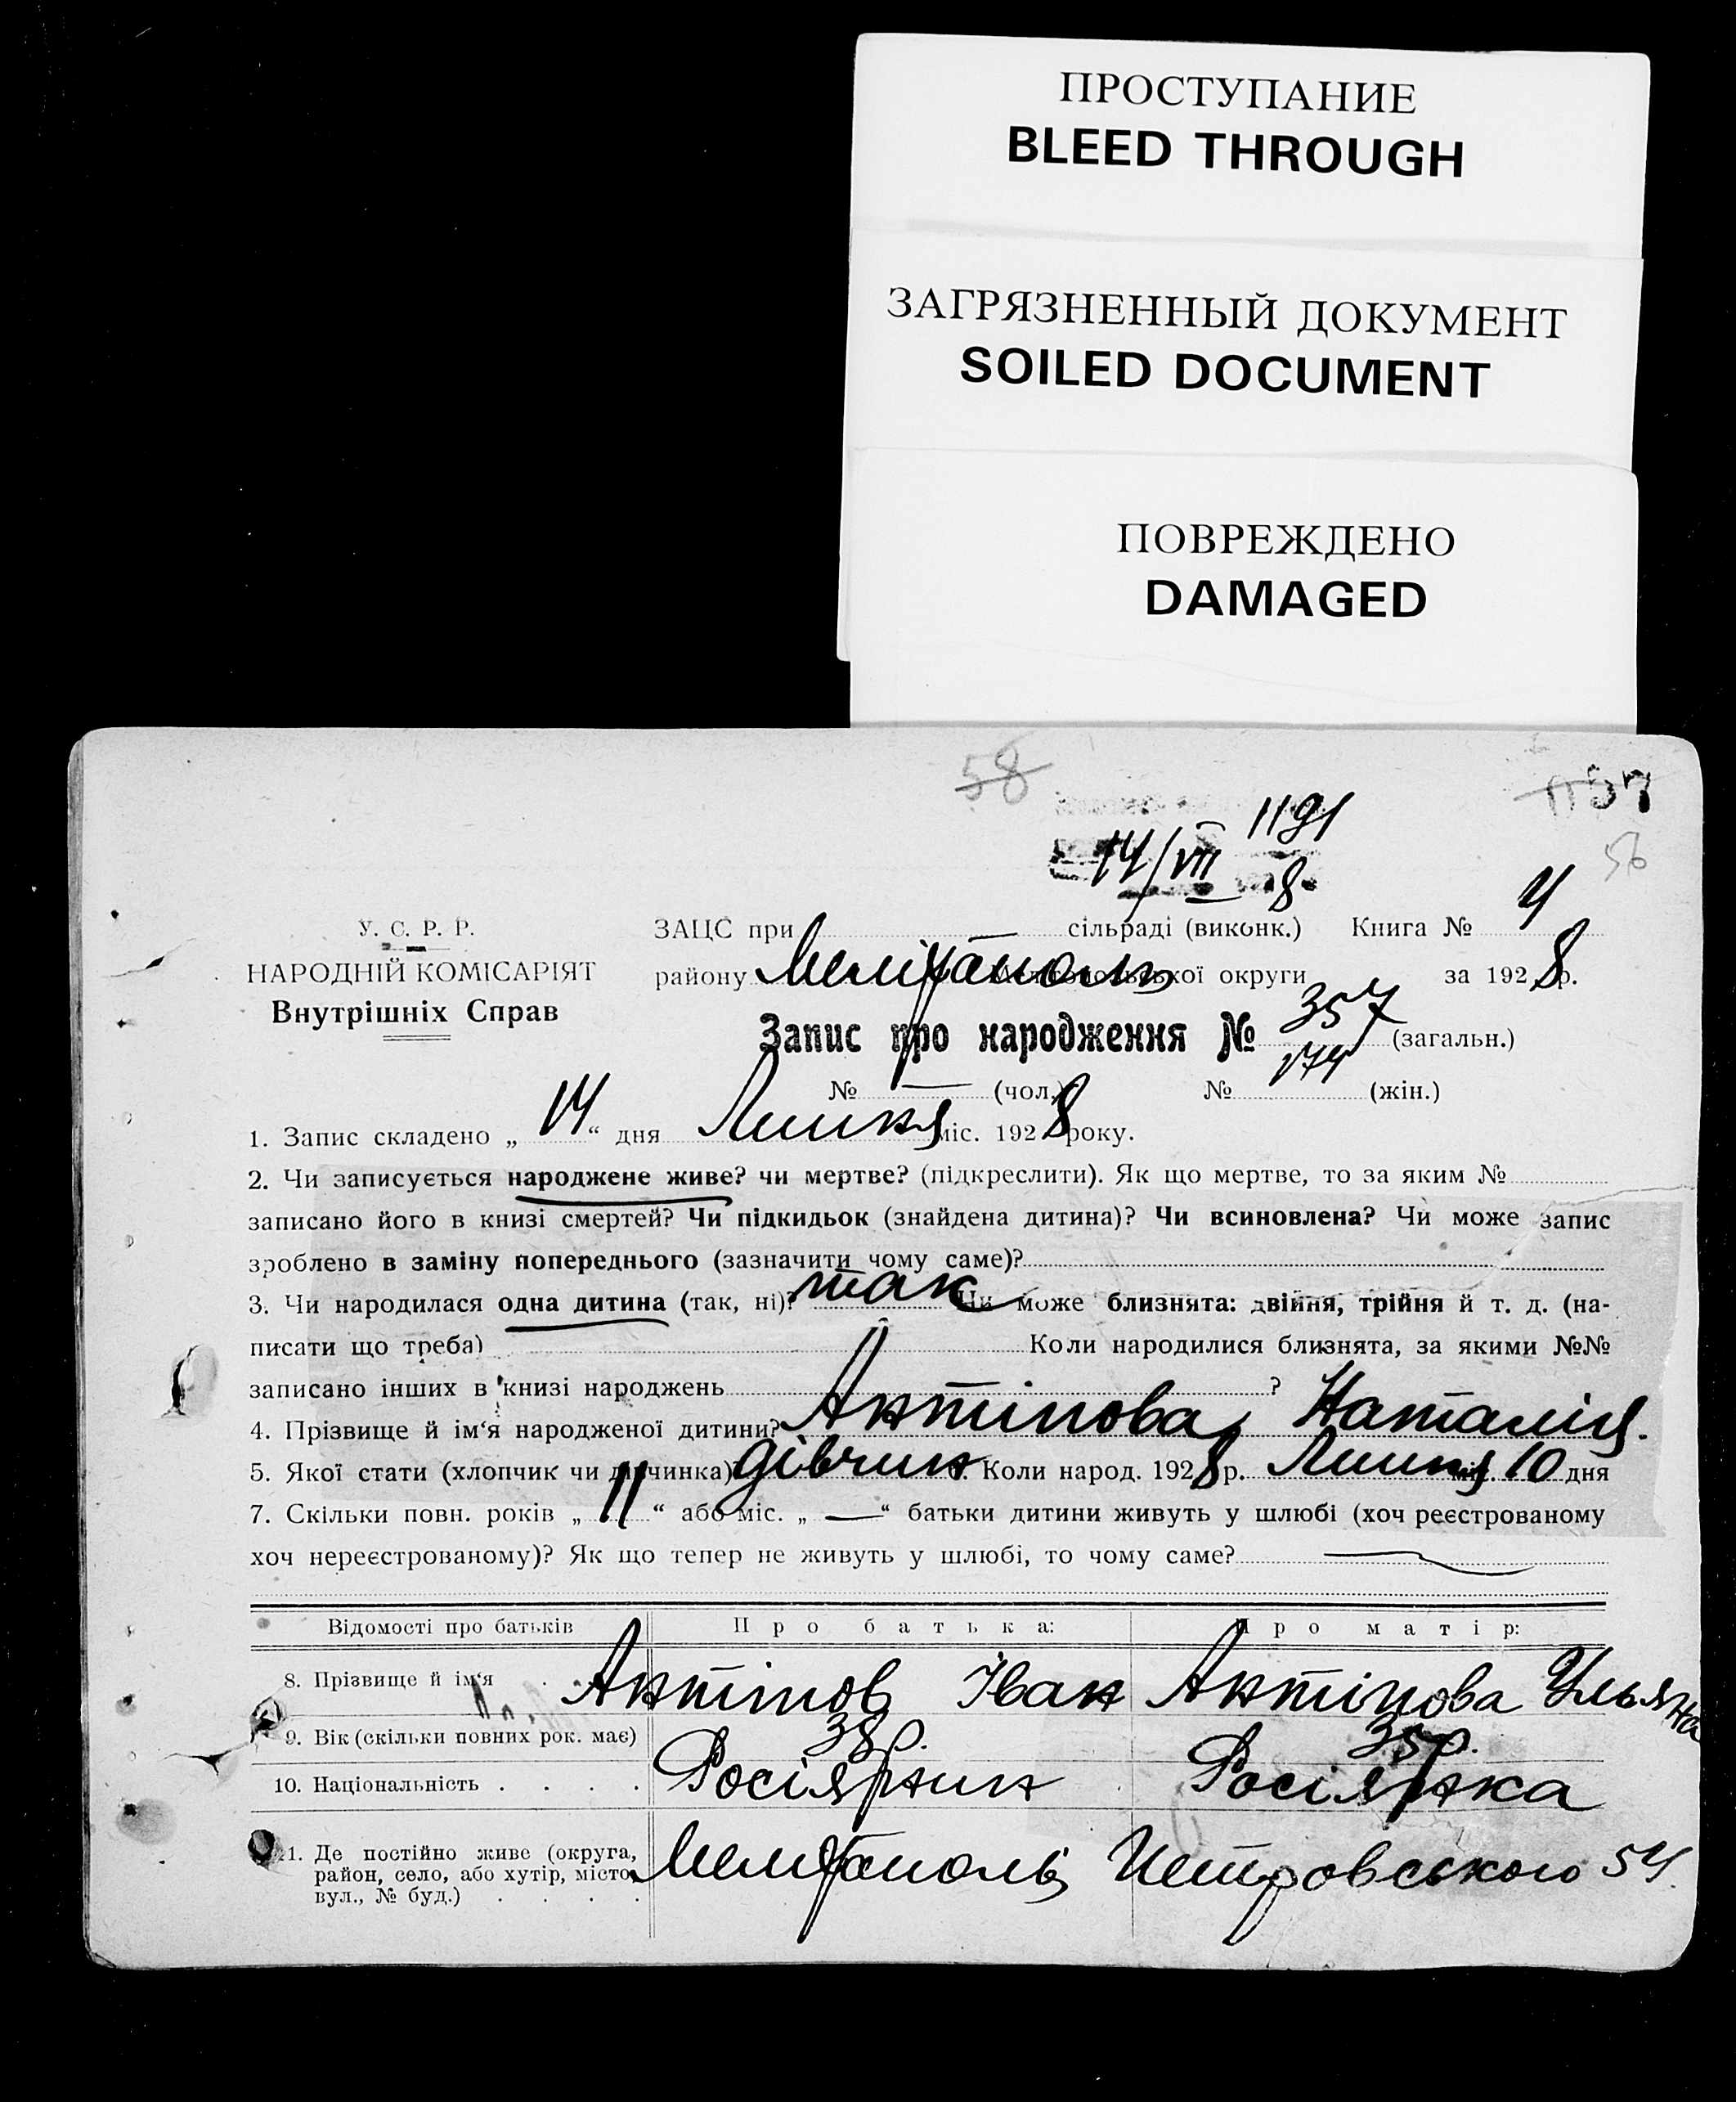 ПРОСТУПАНИЕ
BLEED THROUGH
ЗАГРЯЗНЕННЫЙ ДОКУМЕНТ
SOILED DOCUMENT
ПОВРЕЖДЕНО
DAMAGED
58 57
1191
14/VII 8 56
У. С. Р. Р. ЗАЦС при сільраді (виконк.) Книга № 4
НАРОДНІЙ КОМІСАРІЯТ району Мелітополь округи за 1928 р.
Внутрішніх Справ
Запис про народження № 357 (загальн.)
№ — (чол.) № 174 (жін.)
1. Запис складено „ 14 “ дня Липня міс. 1928 року.
2. Чи записується народжене живе? чи мертве? (підкреслити). Як що мертве, то за яким №
записано його в книзі смертей? Чи підкидьок (знайдена дитина)? Чи всиновлена? Чи може запис
зроблено в заміну попереднього (зазначити чому саме)?
3. Чи народилася одна дитина (так, ні)? так Чи може близнята: двійня, трійня й т. д. (на-
писати що треба) Коли народилися близнята, за якими №№
записано інших в книзі народжень ?
4. Прізвище й ім‘я народженої дитини? Антіпова Наталія.
5. Якої стати (хлопчик чи дівчинка) дівчин. Коли народ. 1928 р. Липня міс. 10 дня
7. Скільки повн. років „ 11 “ або міс. „ — “ батьки дитини живуть у шлюбі (хоч реєстрованому
хоч нереєстрованому)? Як що тепер не живуть у шлюбі, то чому саме? —
Відомості про батьків Про батька: Про матір:
8. Прізвище й ім‘я Антіпов Іван Антіпова Ульяна
9. Вік (скільки повних рок. має) 38 р. 35 р.
10. Національність . . . . Росіянин Росіянка
11. Де постійно живе (округа,
район, село, або хутір, місто, Мелітополь Петровського 54.
вул., № буд.) . . . .